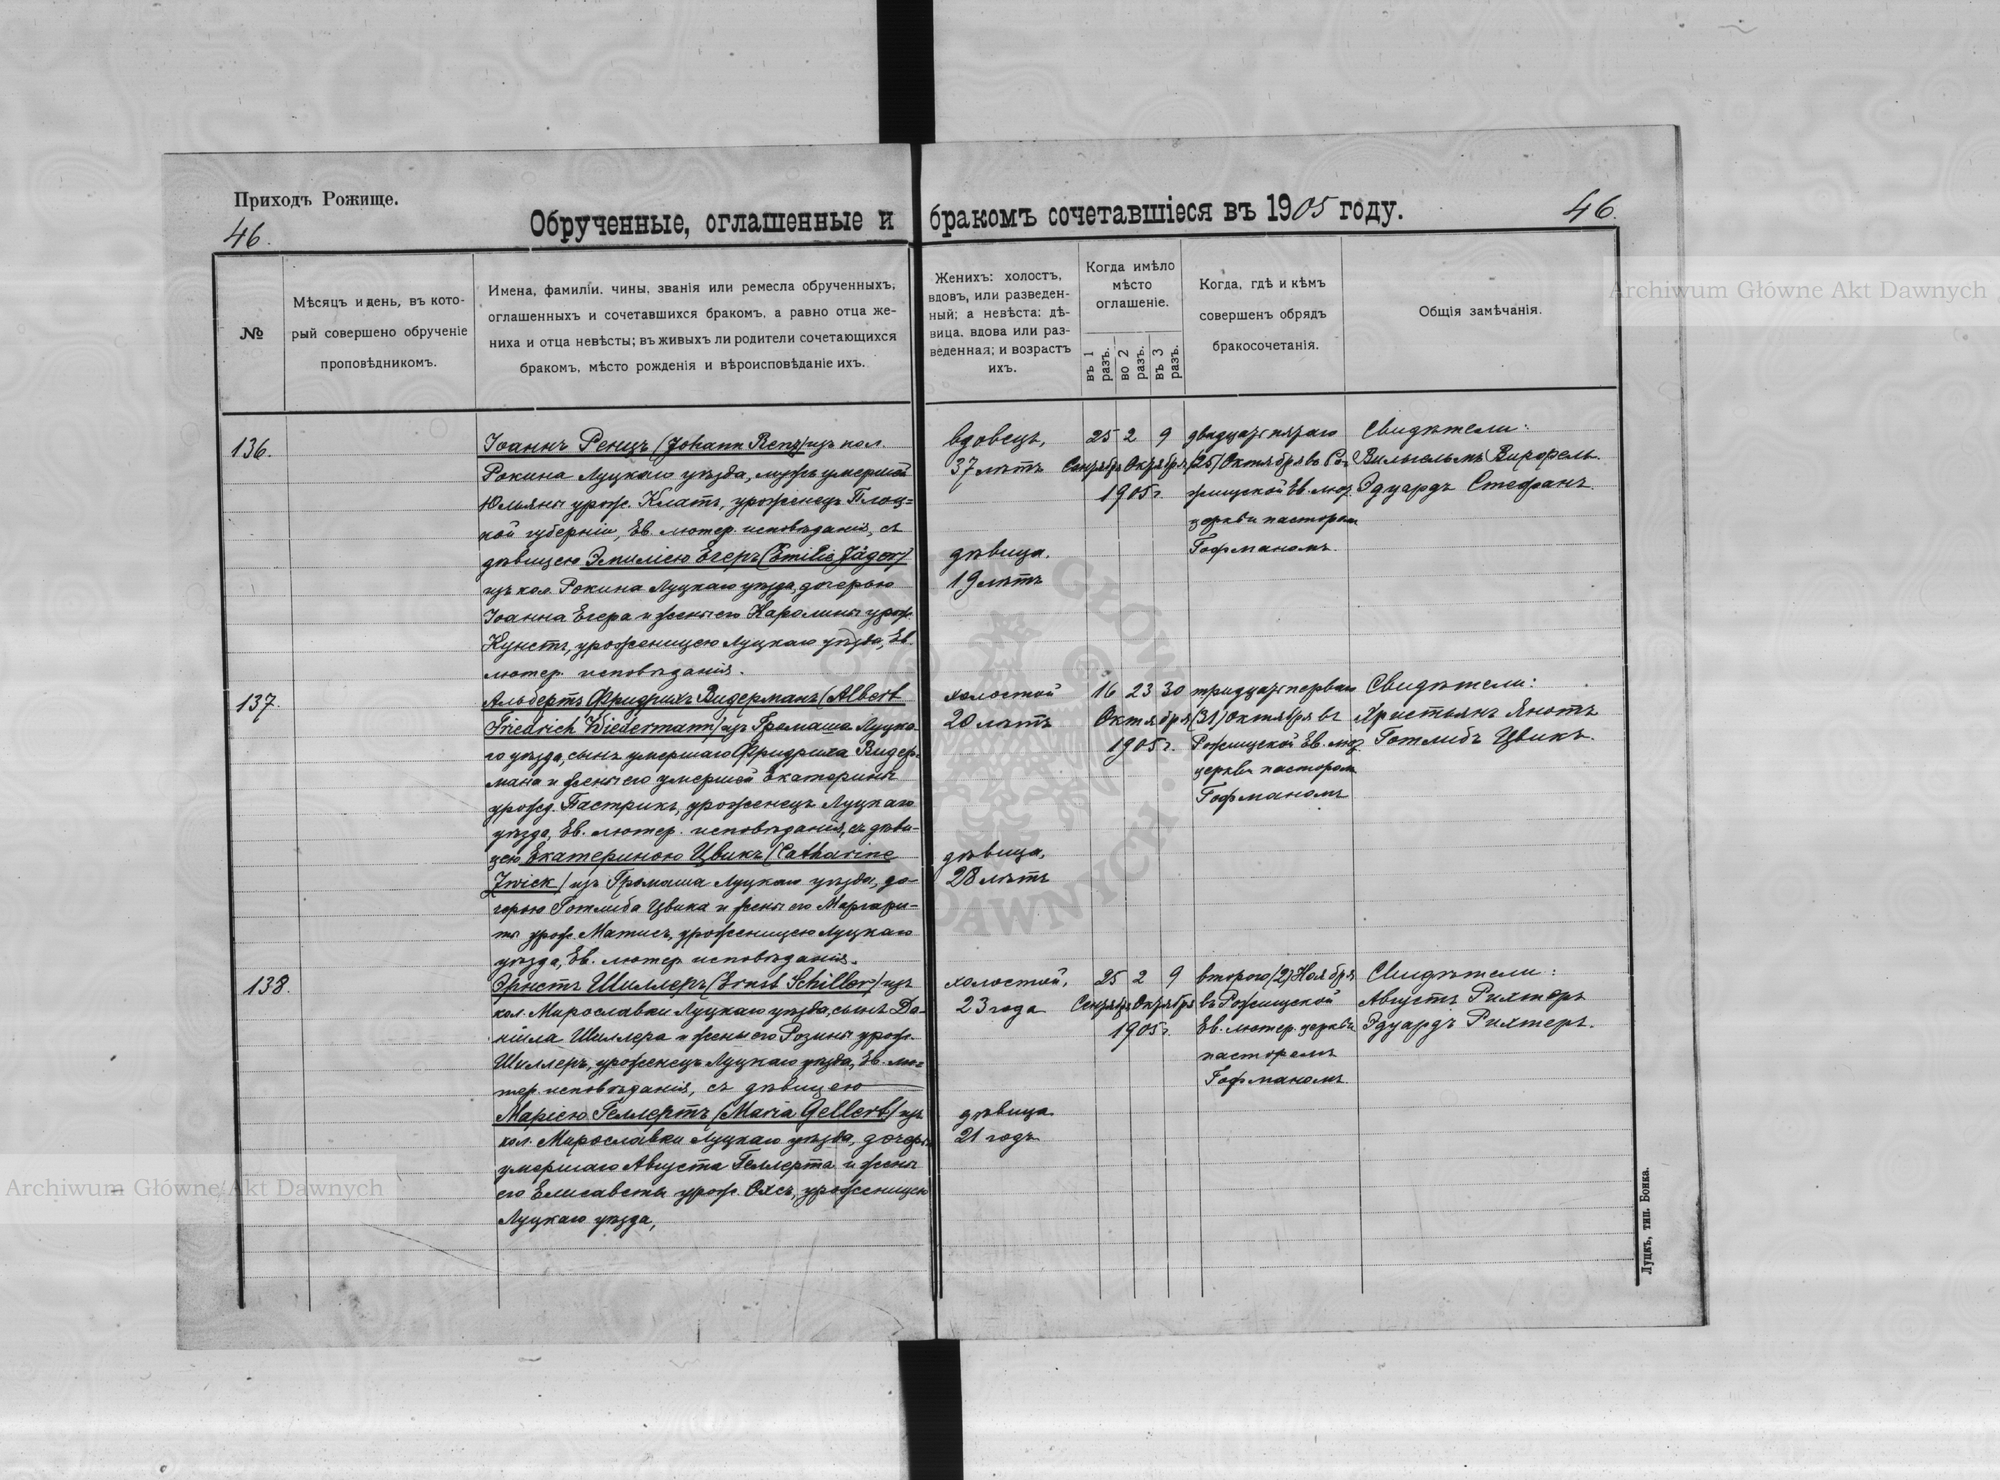 Приходъ Рожище.
46.
Обрученные, оглашенные и бракомъ сочетавшіеся въ 1905 году.
46.
№
Мѣсяцъ и день, въ кото-
рый совершено обрученіе
проповѣдникомъ.
Имена, фамиліи, чины, званія или ремесла обрученныхъ,
оглашенныхъ и сочетавшихся бракомъ, а равно отца же-
ниха и отца невѣсты; въ живыхъ ли родители сочетающихся
бракомъ, мѣсто рожденія и вѣроисповѣданіе ихъ.
Женихъ: холостъ,
вдовъ, или разведен-
ный; а невѣста: дѣ-
вица, вдова или раз-
веденная; и возрастъ
ихъ.
Когда имѣло
мѣсто
оглашеніе.
въ 1 разъ.
во 2 разъ.
въ 3 разъ.
Когда, гдѣ и кѣмъ
совершенъ обрядъ
бракосочетанія.
Общія замѣчанія.
136.
Іоаннъ Ренцъ (Johann Renz) изъ кол.
Рокина Луцкаго уѣзда, мужъ умершей
Юльяны урож. Клатъ, уроженецъ Плоц-
кой губерніи, Ев. лютер. исповѣданія, съ
дѣвицею Эмиліею Егеръ (Emilie Jäger)
изъ кол. Рокина Луцкаго уѣзда, дочерью
Іоанна Егера и жены его Каролины урож.
Кунстъ, уроженицею Луцкаго уѣзда, Ев.
лютер. исповѣданія.
вдовецъ,
37 лѣтъ
дѣвица.
19 лѣтъ
25 2 9
Сентября Октября
1905 г.
двадцать пятаго
(25) Октября въ Ро-
жищской Ев. лют.
церкви пасторомъ
Гофманомъ.
Свидѣтели:
Вильгельмъ
Эдуардъ Стефанъ.
137.
Альбертъ Фридрихъ Видерманъ (Albert
Friedrich Wiedermann) изъ Громаша Луцка-
го уѣзда, сынъ умершаго Фридриха Видер-
мана и жены его умершей Екатерины
урожд. Гастрикъ, уроженецъ Луцкаго
уѣзда, Ев. лютер. исповѣданія, съ дѣви-
цею Екатериною Цвикъ (Catharine
Zwick) изъ Громаша Луцкаго уѣзда, до-
черью Готлиба Цвика и жены его Маргари-
ты урож. Матисъ, уроженицею Луцкаго
уѣзда, Ев. лютер. исповѣданія.
холостой
20 лѣтъ
дѣвица,
28 лѣтъ
16 23 30
Октября
1905 г.
тридцать перваго
(31) Октября въ
Рожищской Ев. лют.
церкви пасторомъ
Гофманомъ
Свидѣтели:
Христьянъ Янотъ
Готлибъ Цвикъ.
138.
Эрнстъ Шиллеръ (Ernst Schiller) изъ
кол. Мирославки Луцкаго уѣзда, сынъ Да-
ніила Шиллера и жены его Розины урож.
Шиллеръ, уроженецъ Луцкаго уѣзда, Ев. лю-
тер. исповѣданія, съ дѣвицею
Маріею Геллертъ (Maria Gellert) изъ
кол. Мирославки Луцкаго уѣзда, дочерью
умершаго Августа Геллерта и жены
его Елисаветы урож. уроженицею
Луцкаго уѣзда,
холостой,
23 года
дѣвица
21 годъ
25 2 9
Сентября Октября
1905 г.
второго (2) Ноября
въ Рожищской
Ев. лютер. церкви
пасторомъ
Гофманомъ.
Свидѣтели:
Августъ Рихтеръ
Эдуардъ Рихтеръ.
Луцкъ, тип. Бонка.
Archiwum Główne Akt Dawnych
Archiwum Główne Akt Dawnych